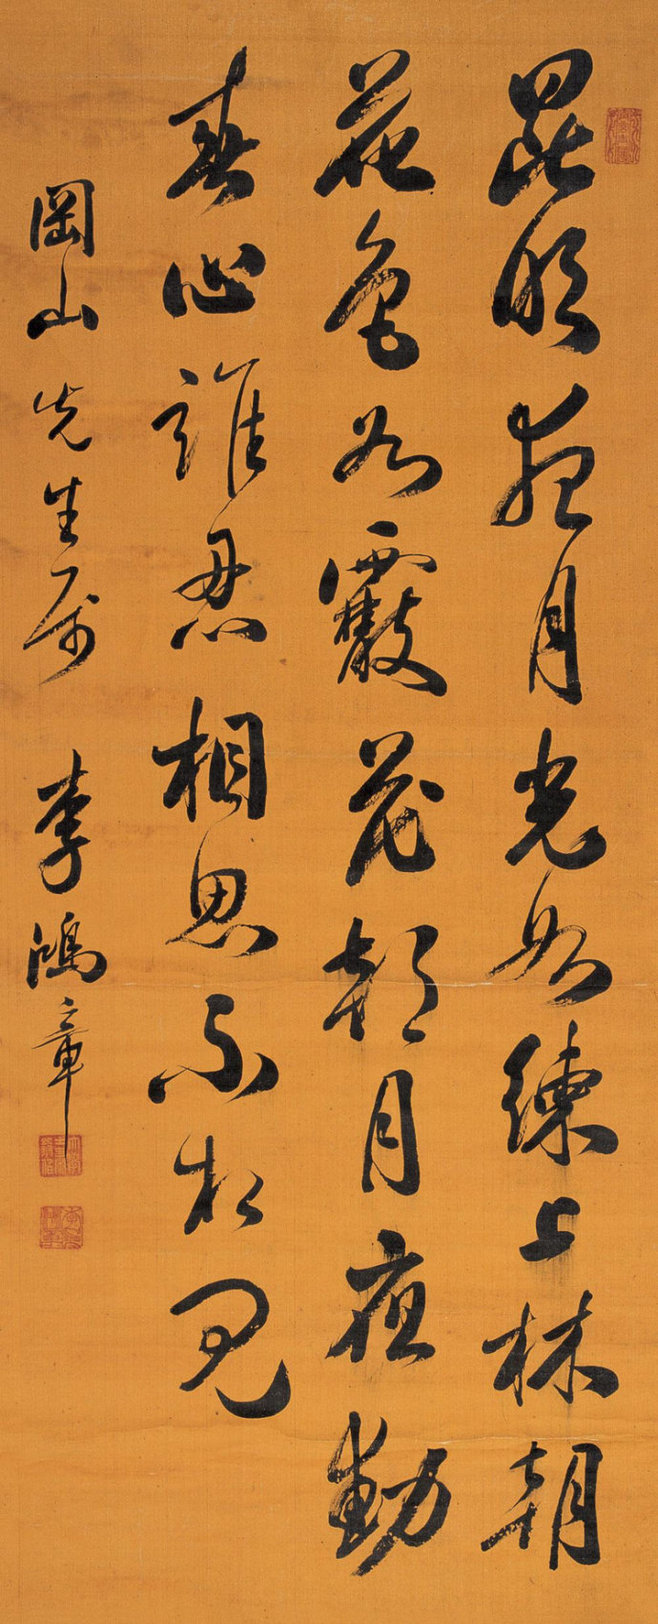 昆明夜月光如練上林朝
花色如霰花朝月夜動
春心誰忍相思不相見
岡山先生屬 李鴻章